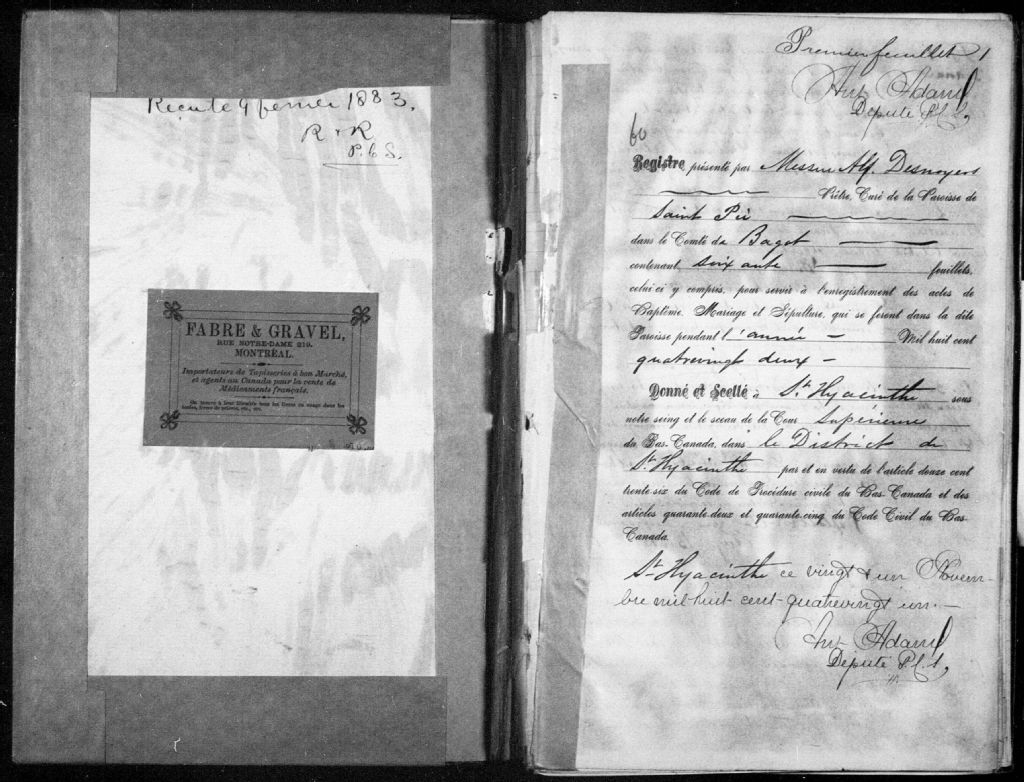 Reçu le 9 fevrier 1883.
R & R
P.C.S.
FABRE & GRAVEL,
RUE NOTRE-DAME 219.
MONTRÉAL.
Importateurs de Tapisseries à bon Marché,
et agents au Canada pour la vente de
Médicaments français.
On trouve à leur librairie tous les livres en usage dans les
Premier feuillet 1
Ant Adam
Député P.C.S,
60
Registre présenté par Messire Alf. Desnoyers
Prêtre, Curé de la Paroisse de
Saint Pie
dans le Comté de Bagot
contenant soixante feuillets,
celui-ci y compris, pour servir à l'enregistrement des actes de
Baptême, Mariage et Sépulture, qui se feront dans la dite
Paroisse pendant l'année - Mil huit cent
quatrevingt deux -
Donné et Scellé à St. Hyacinthe sous
notre seing et le sceau de la Cour Supérieure
du Bas-Canada, dans le District de
St. Hyacinthe par et en vertu de l'article douze cent
trente-six du Code de Procédure civile du Bas-Canada et des
articles quarante-deux et quarante-cinq du Code Civil du Bas-
Canada.
St. Hyacinthe ce vingt & un Novem-
bre mil-huit-cent-quatrevingt un. -
Ant Adam
Député P.C.S,